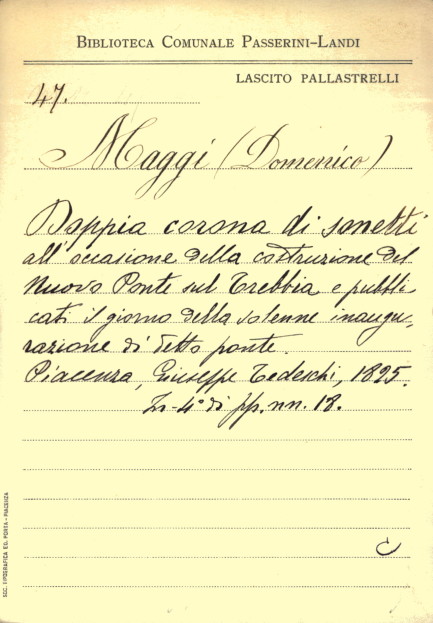 BIBLIOTECA COMUNALE PASSERINI-LANDI
LASCITO PALLASTRELLI
47.
Maggi (Domenico)
Doppia corona di sonetti
all'occasione della costruzione del
Nuovo Ponte sul Trebbia e pubbli
cati il giorno della solenne inaugu-
razione di detto ponte.
Piacenza, Giuseppe Tedeschi, 1825.
In-4° di pp. nn. 18.
C
SOC. TIPOGRAFICA ED. PORTA - PIACENZA